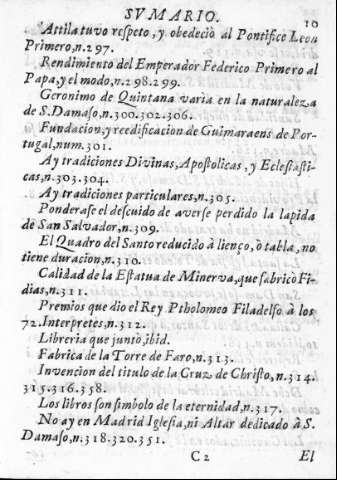 SVMARIO. 10
Attila tuvo reſpeto, y obedeciò al Pontifice Leon
Primero, n.297.
Rendimiento del Emperador Federico Primero al
Papa, y el modo, n.298.299.
Geronimo de Quintana varia en la naturaleza
de S. Damaſo, n.300.302.306.
Fundacion, y reedificacion de Guimaraens de Por-
tugal, num.301.
Ay tradiciones Divinas, Apoſtolicas, y Ecleſiaſti-
cas, n.303.304.
Ay tradiciones particulares, n.305.
Ponderaſe el deſcuido de averſe perdido la lapida
de San Salvador, n.309.
El Quadro del Santo reducido à lienço, ò tabla, no
tiene duracion, n.310.
Calidad de la Eſtatua de Minerva, que fabricò Fi-
dias, n.311.
Premios que dio el Rey Ptholomeo Filadelfo à los
72. Interpretes, n.312.
Libreria que juntò, ibid.
Fabrica de la Torre de Faro, n.313.
Invencion del titulo de la Cruz de Chriſto, n.314.
315.316.358.
Los libros ſon ſimbolo de la eternidad, n.317.
No ay en Madrid Igleſia, ni Altar dedicado à S.
Damaſo, n.318.320.351.
C2 El